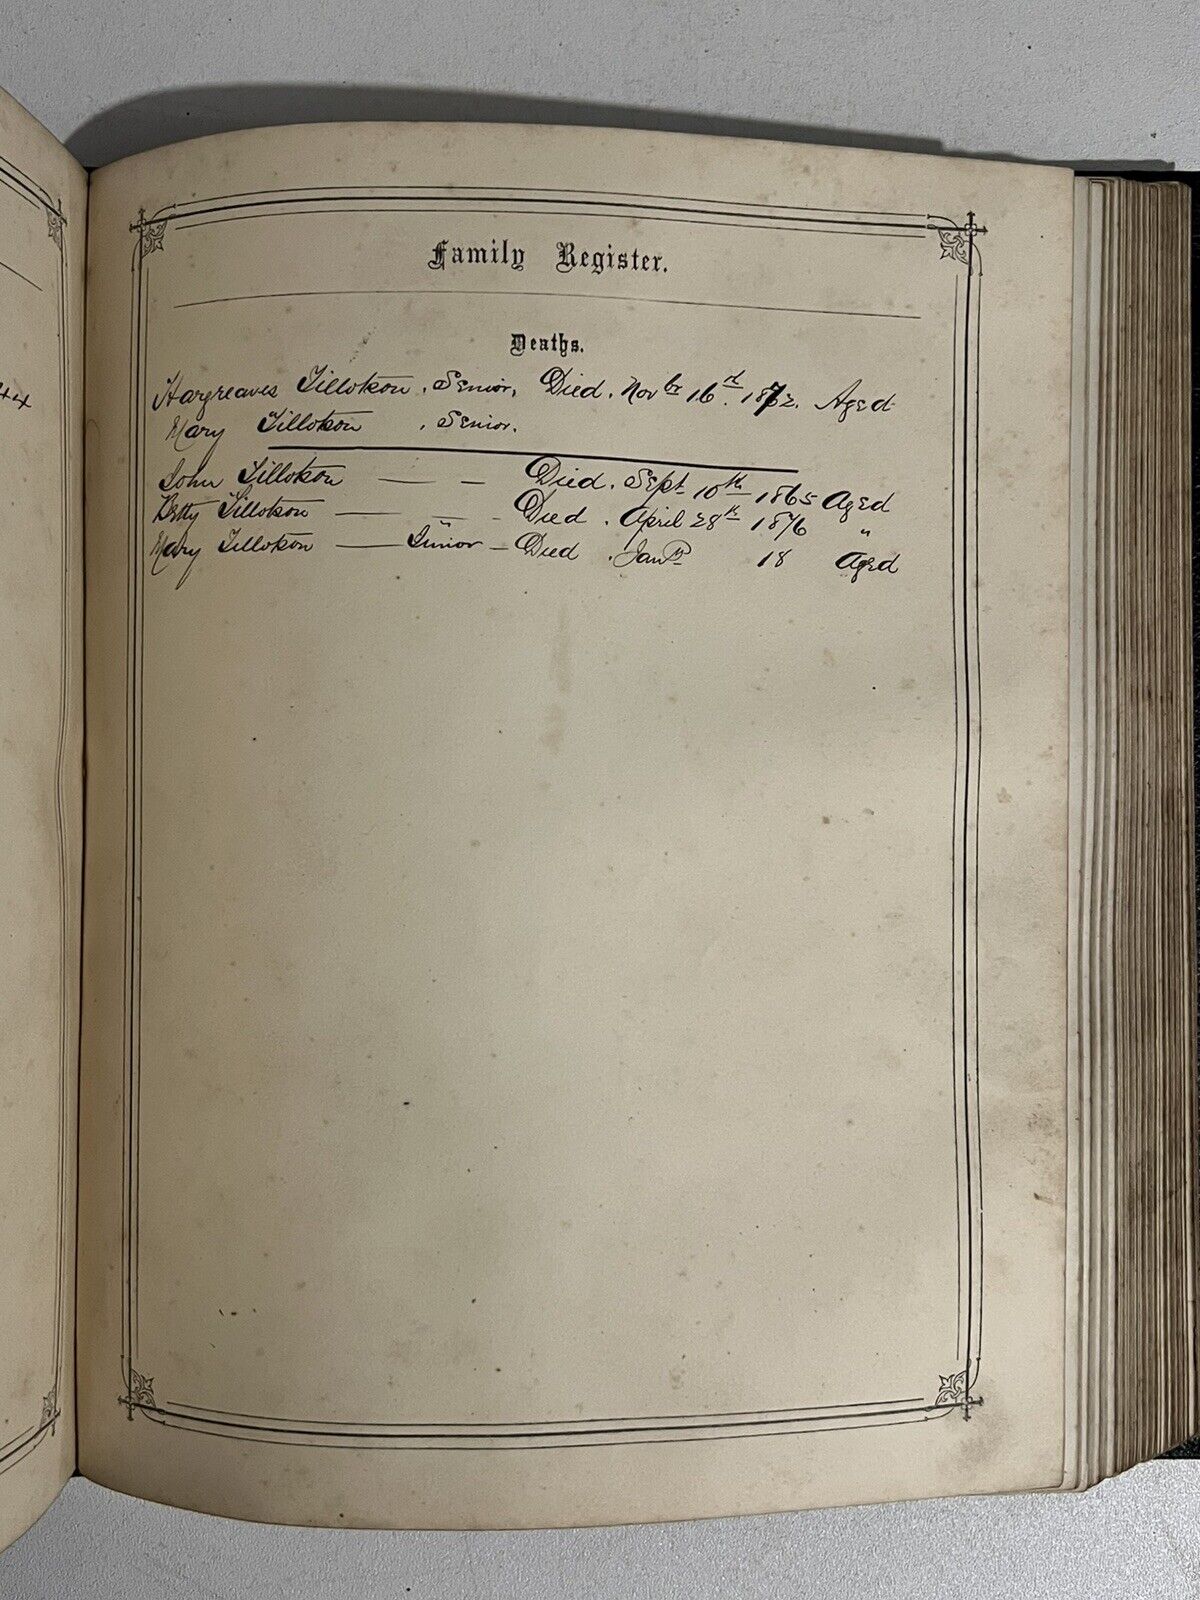 Family Register.
Deaths.
Hargreaves Tillotson, Senior, Died. Novbr 16rd 1872. Aged
Mary Tillotson, Senior.
John Tillotson — — Died. Sept 10th 1865 Aged
Betty Tillotson — — - Died. April 28th 1876 "
Mary Tillotson — Junior - Died. Jany 18 Aged
44